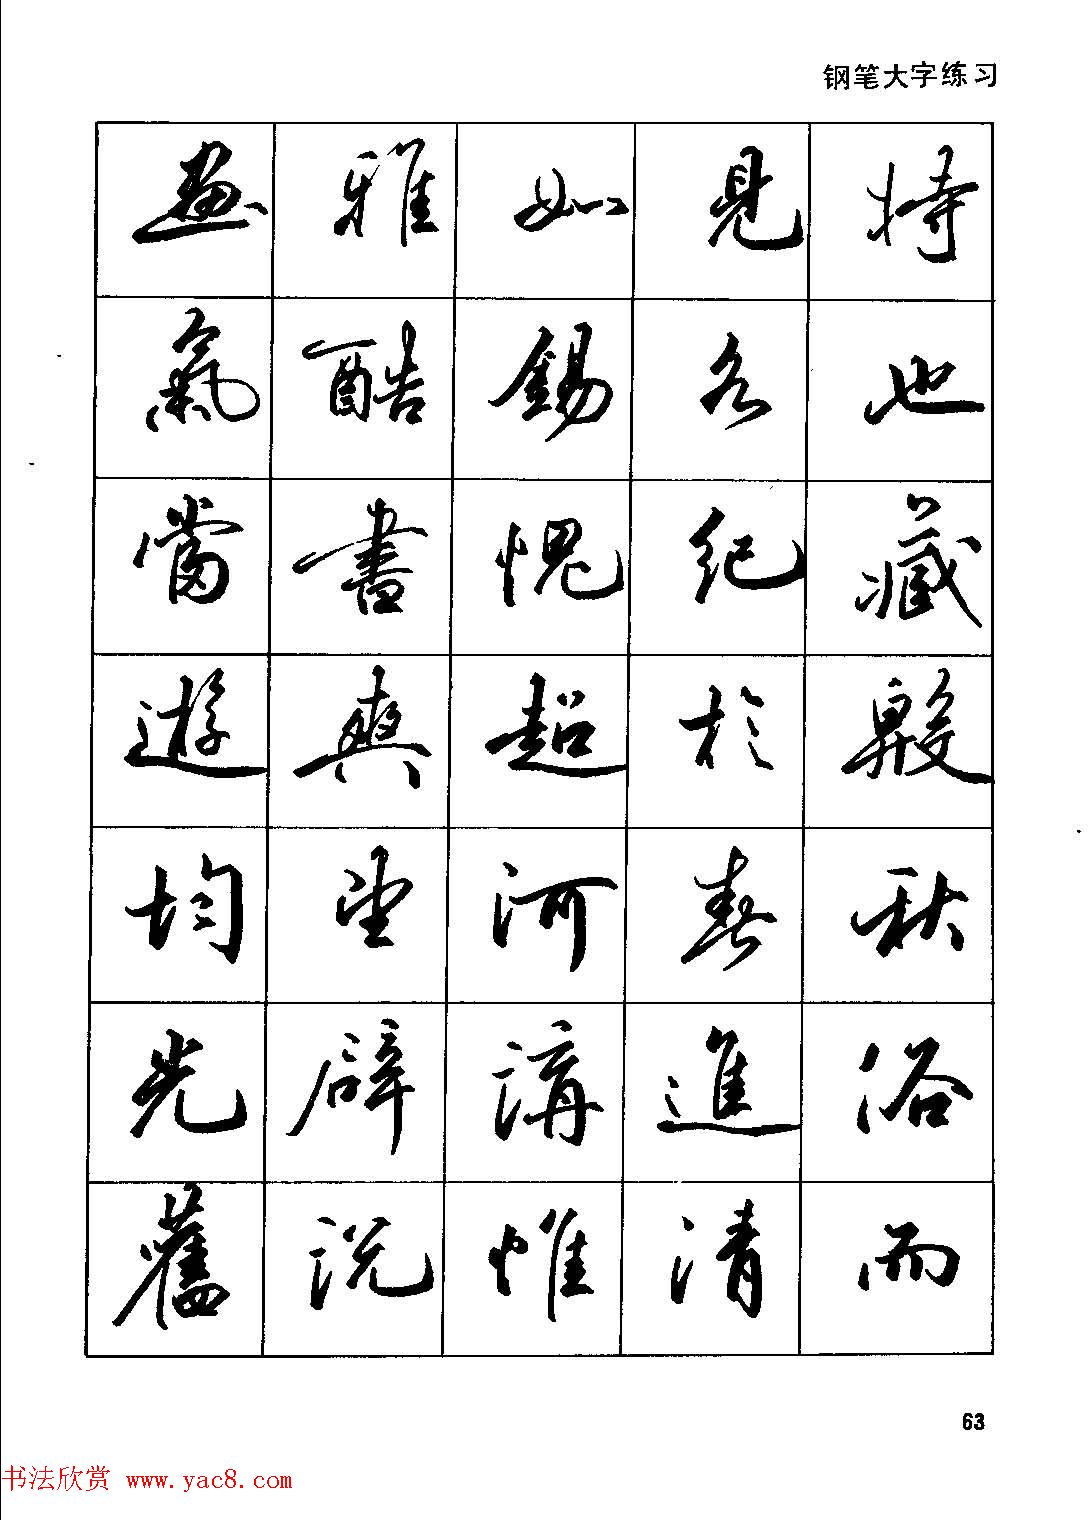 钢笔大字练习
畫雅如見特
氣酷錫名也
當書愧紀藏
遊爽超於
均望河春秋
光辟講進俗
舊説惟清而
63
书法欣赏 www.yac8.com